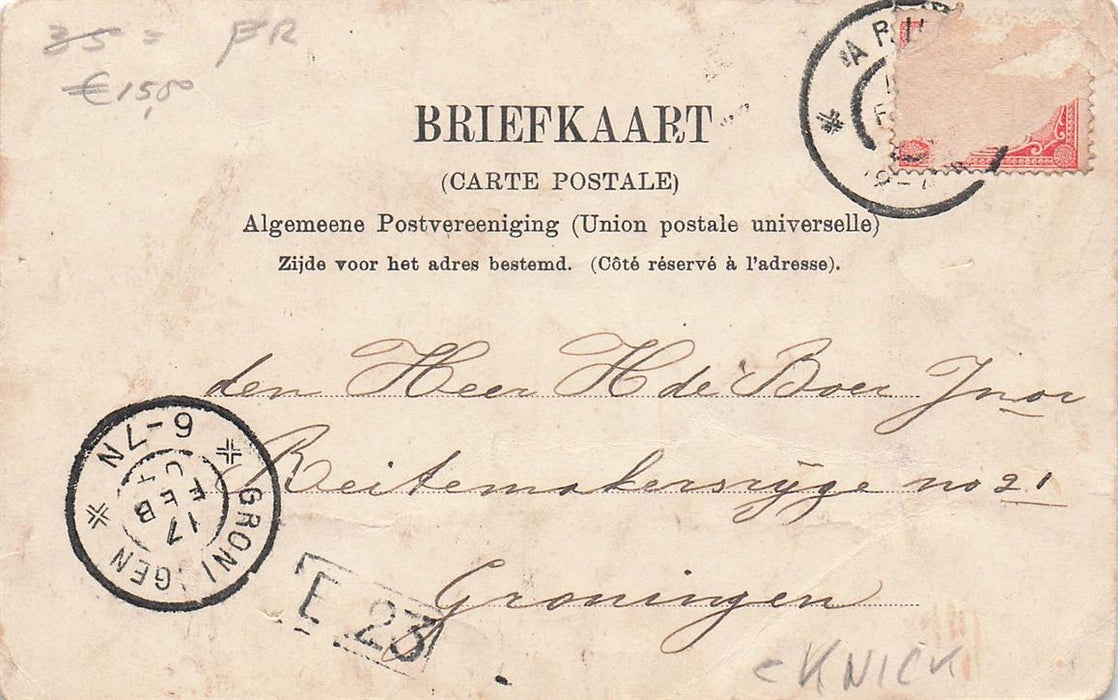 35 = FR
€ 15,00
BRIEFKAART
(CARTE POSTALE)
Algemeene Postvereeniging (Union postale universelle)
Zijde voor het adres bestemd. (Côté réservé à l'adresse).
den Heer H de Boer Jnor
Reitemakersrijge no 21
Groningen
GRONINGEN
6-7N
17 FEB 04
E 23
KNICK